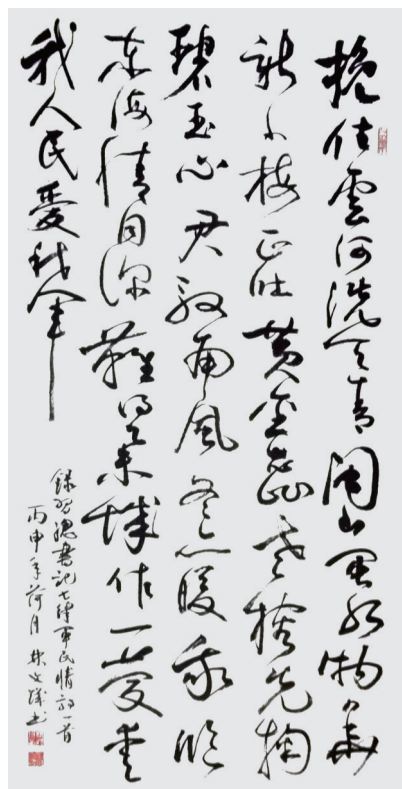 挽住雲河洗天青閩山閩水物華
新小梅正吐黄金蕊老榕先掬
碧玉心君馭南風冬亦暖我临
东海情同深難得举城作一慶爱
我人民愛我军
録習總書記七律軍民情詩一首
丙申年荷月林文書